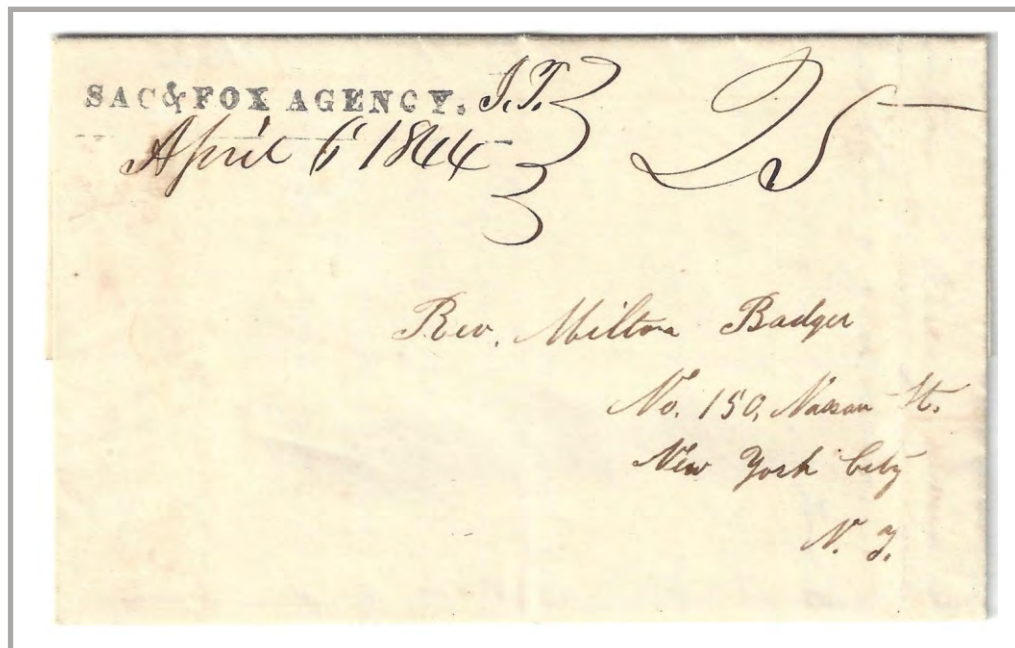 SAC & FOX AGENCY. I.T.
April 6 1844
25
Rev. Milton Badger
No. 150, Nassau St.
New York City
N. Y.